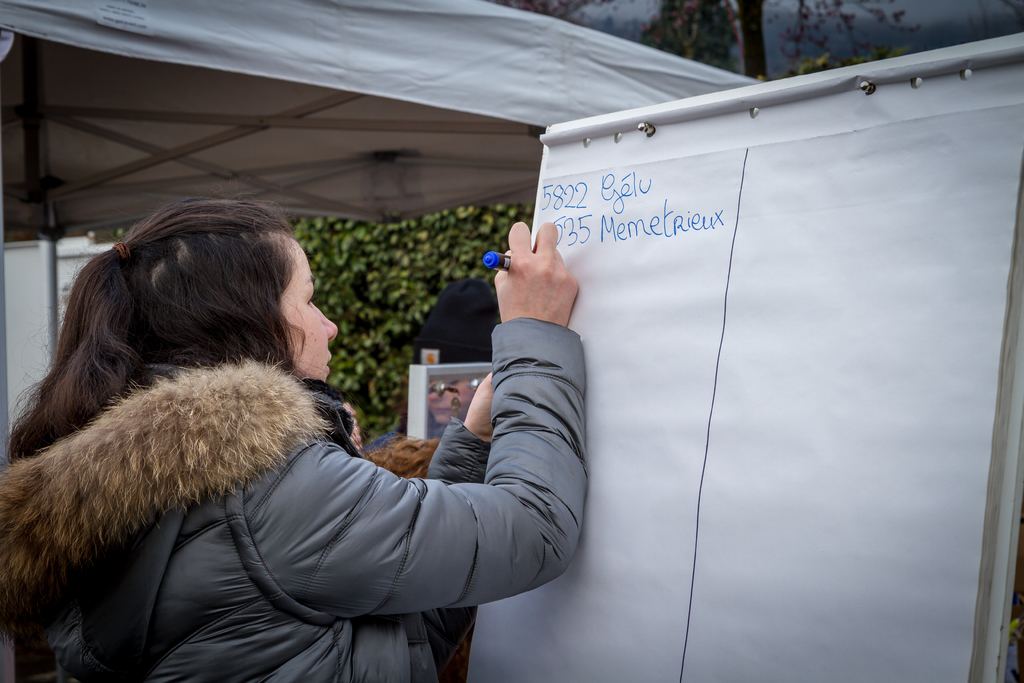 5822 Gélu
535 Memetrieux